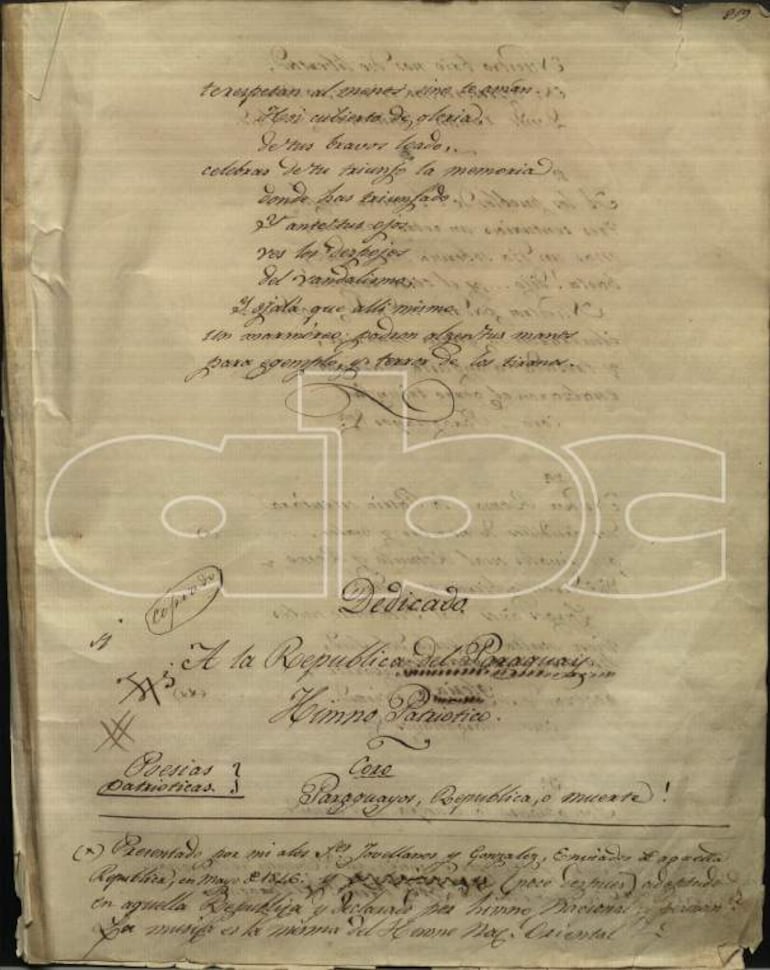 819
te respetan al menos, sino te amán.
Hoi cubierto de gloria,
de tus bravos loado,
celebras de tu triunfo la memoria
donde has triunfado.
Y ante tus ojos
ves los despojos
del vandalismo:
Y ojalá que alli mismo
un marmóreo padron alzen tus manos
para egemplo, y terror de los tiranos.
abc
copiado
Dedicado
A la Republica del Paraguay
(x)
Himno Patriotico.
Poesias
patrioticas.
Coro
Paraguayos, Republica, o muerte!
(x) Presentado por mi a los Sres Jovellanos y Gonzalez, Enviados de aquella
Republica, en Mayo de 1846. y (poco despues) adoptado
en aquella Republica y declarado por himno Nacional
La musica es la misma del Himno Nac. Oriental